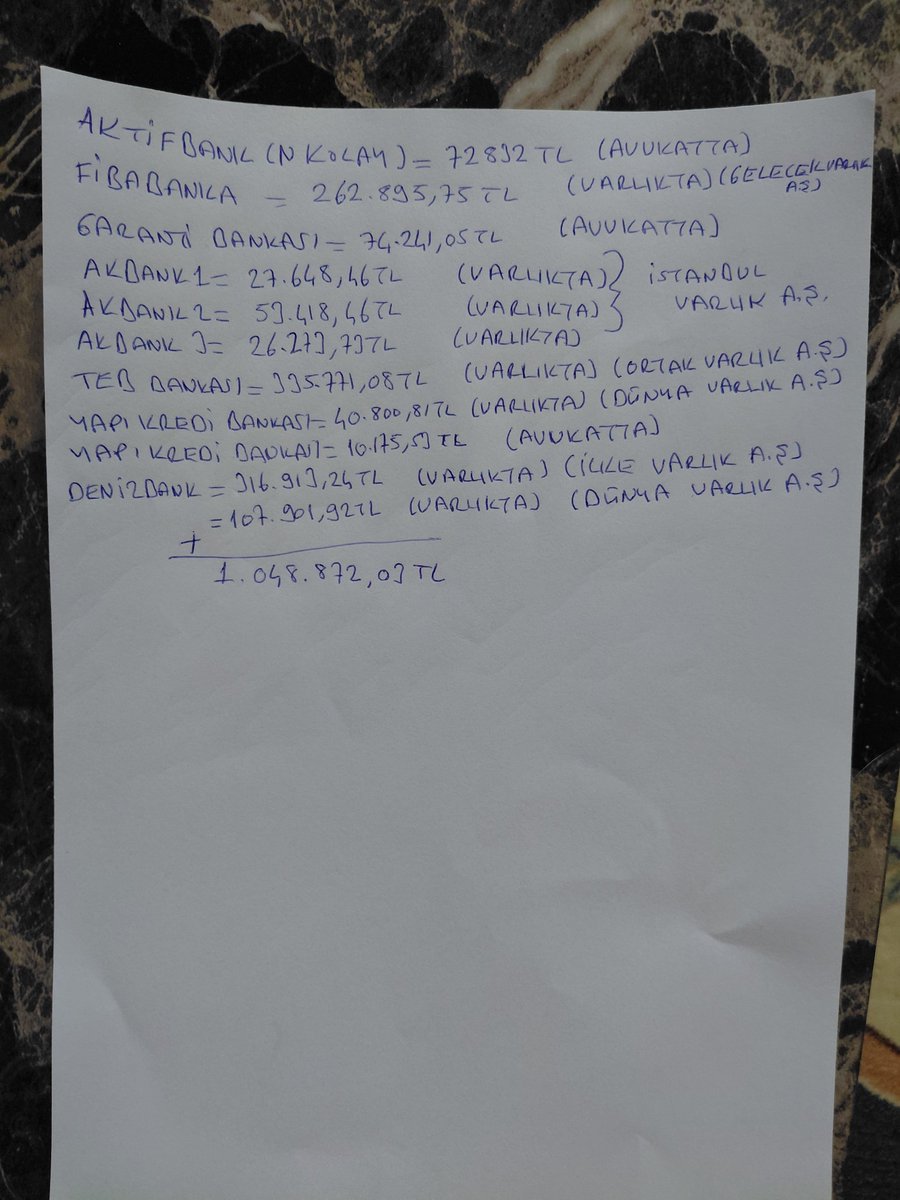 AKTİFBANK (N KOLAY) = 72832 TL (AVUKATTA)
FİBABANKA = 262.895,75 TL (VARLIKTA) (GELECEK VARLIK A.Ş)
GARANTİ BANKASI = 74.241,05 TL (AVUKATTA)
AKBANK 1 = 27.648,46 TL (VARLIKTA) } İSTANBUL
AKBANK 2 = 53.418,46 TL (VARLIKTA) } VARLIK A.Ş.
AKBANK 3 = 26.273,73 TL (VARLIKTA)
TEB BANKASI = 335.771,08 TL (VARLIKTA) (ORTAK VARLIK A.Ş)
YAPI KREDİ BANKASI = 40.800,81 TL (VARLIKTA) (DÜNYA VARLIK A.Ş)
YAPI KREDİ BANKASI = 10.175,53 TL (AVUKATTA)
DENİZBANK = 316.913,24 TL (VARLIKTA) (İLKE VARLIK A.Ş)
= 107.901,92 TL (VARLIKTA) (DÜNYA VARLIK A.Ş)
+
1.048.872,03 TL